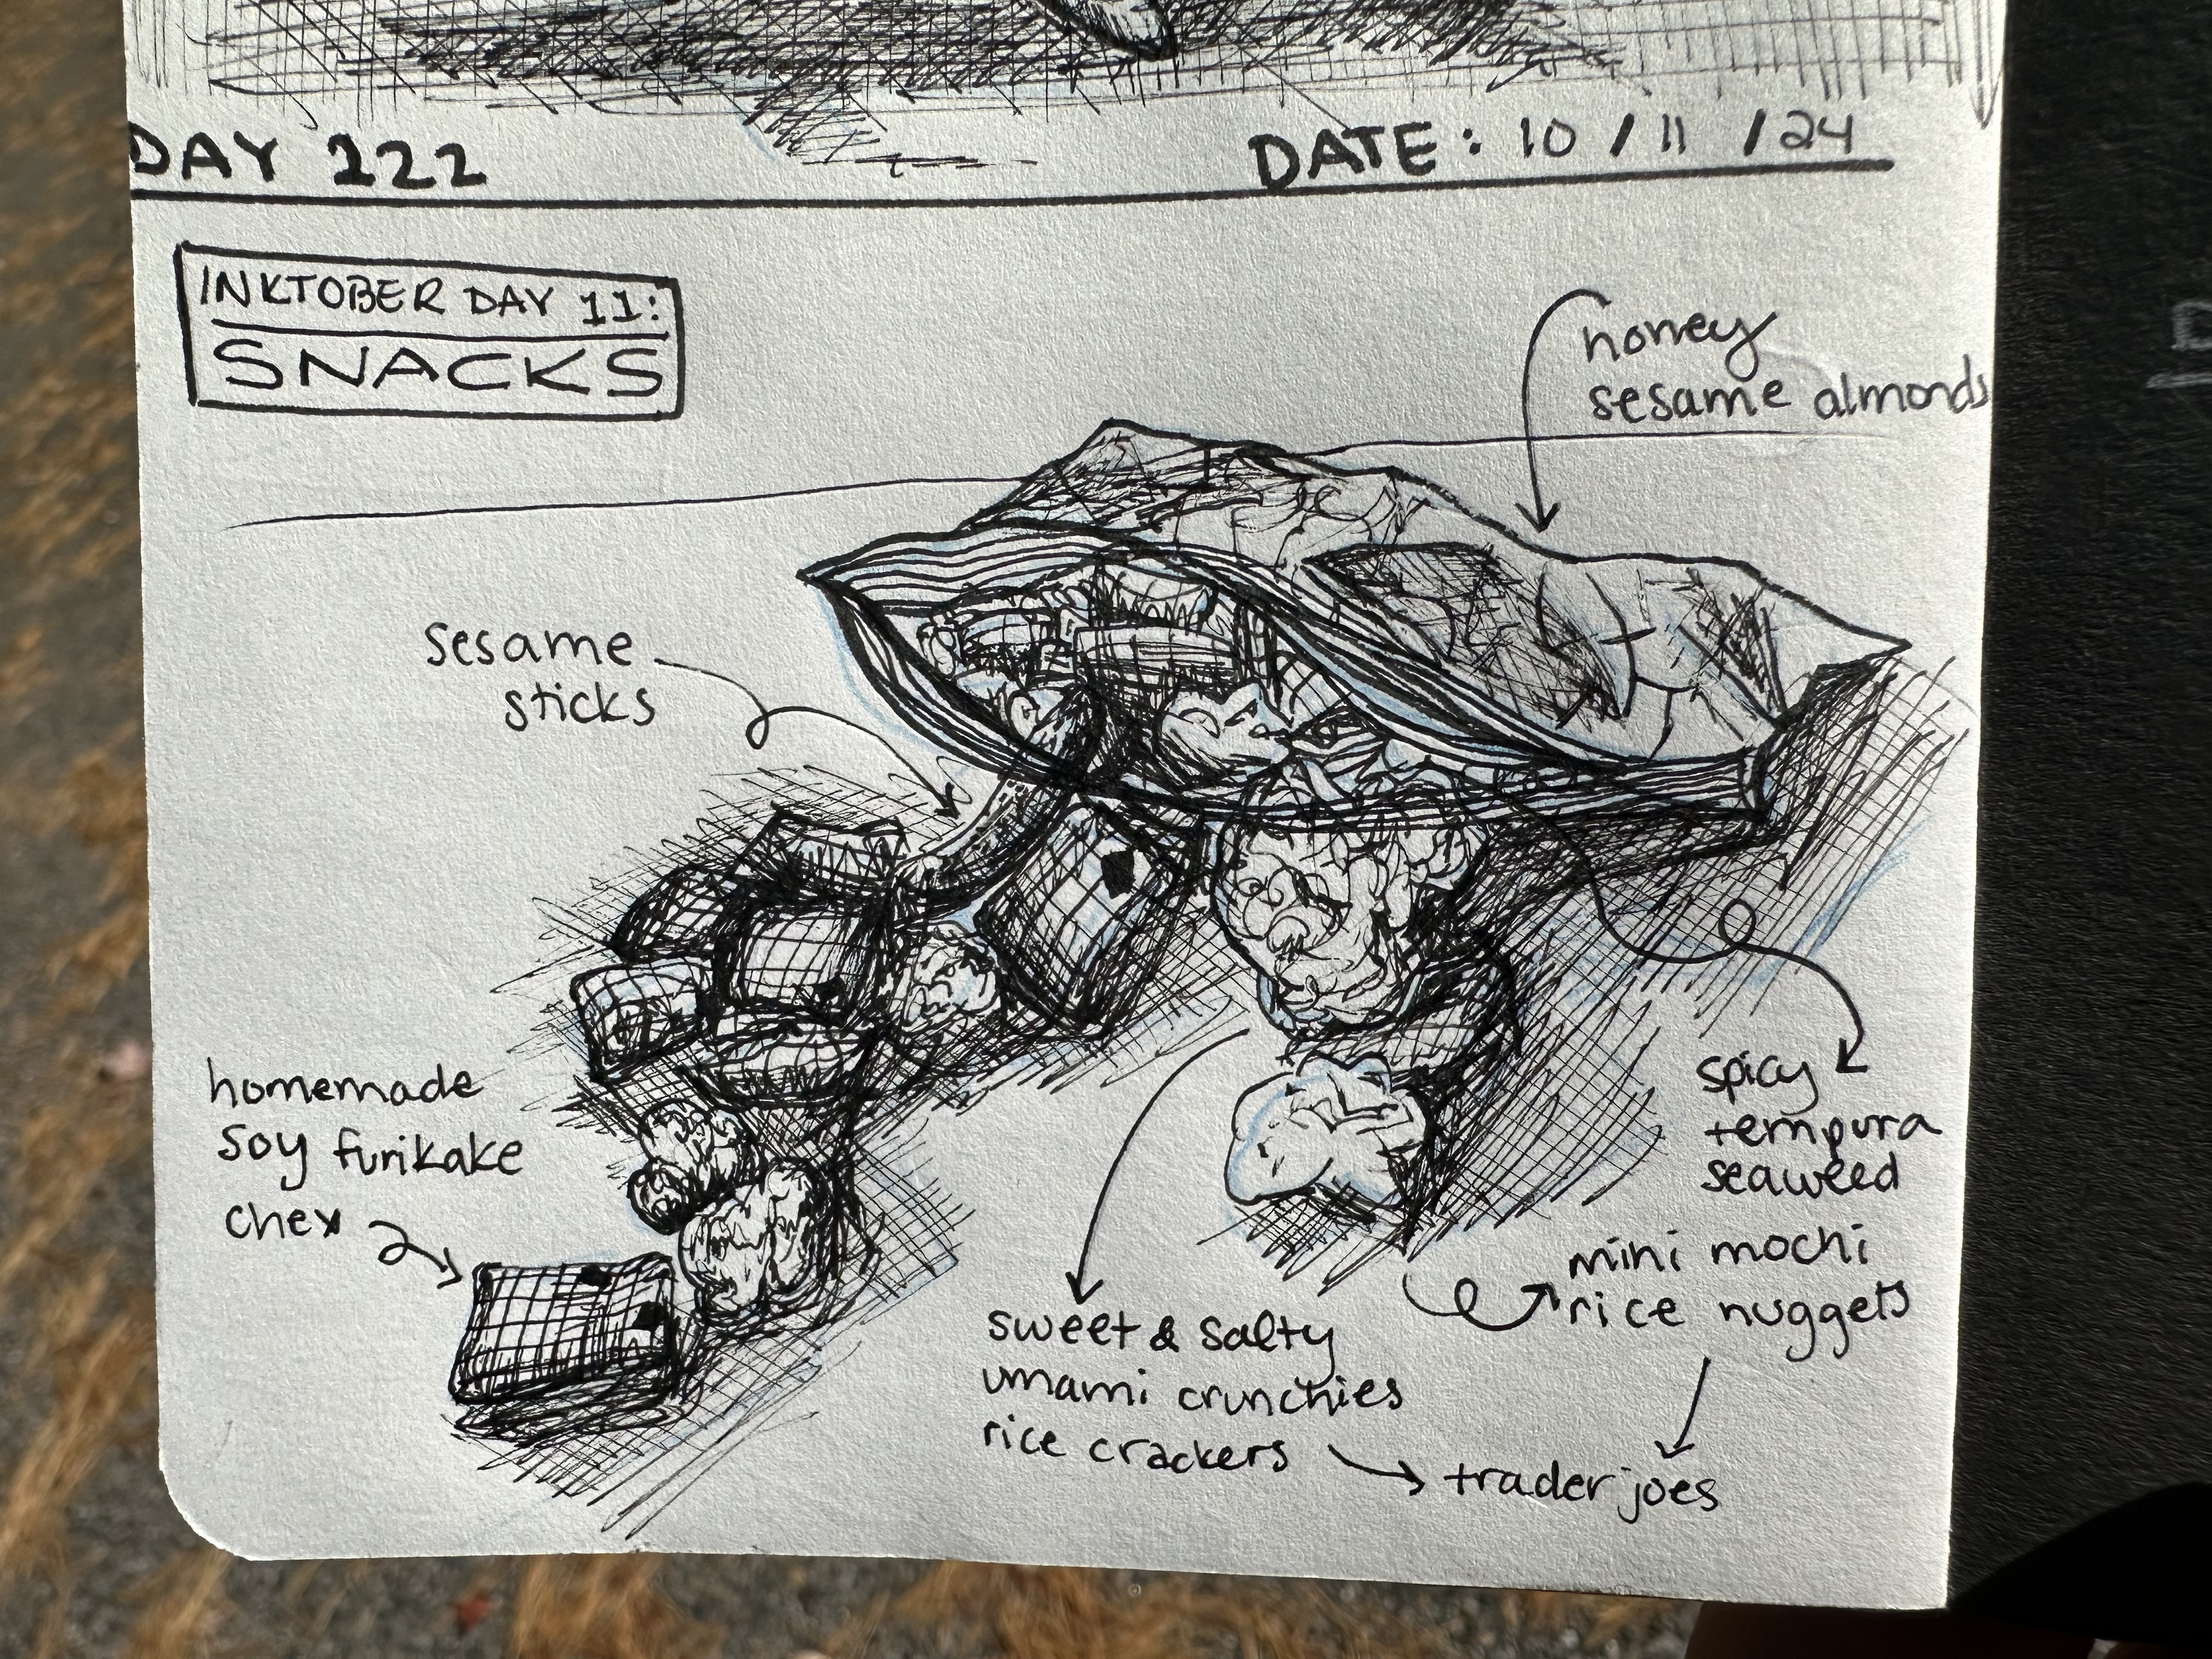 DAY 222
DATE: 10/11/24
INKTOBER DAY 11:
SNACKS
honey
sesame almonds
sesame
sticks
homemade
soy furikake
chex
spicy
tempura
seaweed
mini mochi
rice nuggets
sweet & salty
umami crunchies
rice crackers
trader joes